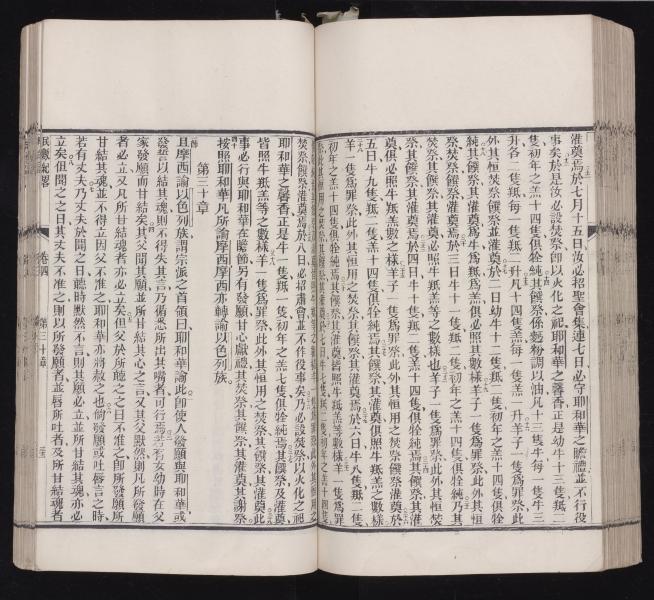 灌奠焉於七月十五日汝必招聖會集連七日必守耶和華之瞻禮並不行役
事矣於是汝必設焚祭即以火化之祀耶和華之馨香正是幼牛十三隻羝二
隻初年之羔十四隻俱牷純焉其饌祭係麪粉調以油凡十三隻牛每一隻牛三
升各一隻羝每一隻羝二升凡十四隻羔每一隻羔一升羊子一隻爲罪祭此
外其恒用之焚祭其饌祭並灌奠於二日幼牛十二隻羝二隻初年之羔十四隻俱牷
純其饌祭其灌奠爲牛爲羝爲羔俱必照其數樣羊子一隻爲罪祭此外其恒
祭焚祭其饌祭灌奠焉於三日牛十一隻羝二隻初年之羔十四隻俱牷純乃其
其饌祭其灌奠必照牛羝羔等之數樣也羊子一隻爲罪祭此外其恒焚
祭其饌祭其灌奠焉於四日牛十隻羝二隻羔十四隻俱牷純焉其饌祭其灌
奠俱必照牛羝羔數之樣羊子一隻爲罪祭此外其恒用之焚祭其饌祭其灌奠於
五日牛九隻羝二隻羔十四隻俱牷純焉其饌祭其灌奠俱照牛羝羔之數樣
羊一隻爲罪祭此外其恒用之焚祭其饌祭其灌奠焉於六日牛八隻羝二隻
初年之羔十四隻俱牷純焉其饌祭其灌奠皆照牛羝羔等數樣羊一隻爲罪
焚祭饌祭灌奠焉於八日必招肅會並不作役事矣乃必設焚祭以火化之祀
耶和華之馨香正是牛一隻羝一隻初年之羔七隻俱牷純焉其饌祭及灌奠
皆照牛羝羔等之數樣羊一隻爲罪祭此外其恒用之焚祭其饌祭其灌奠此
事必行與耶和華在瞻節另有發願甘心獻禮其焚祭其饌祭其灌奠其謝祭
按照耶和華凡所諭摩西摩西亦轉諭以色列族
第三十章
且摩西諭以色列族謂宗派之首領曰耶和華諭此即使人發願與耶和華或
發誓以結其魂則不得失其言乃循悉所出其嘴者可行焉若有女幼時在父
家發願而甘結矣其父聞其願並所甘結其心之言又其父默然則凡所發願
者必立又凡所甘結魂者亦必立矣但父於所聽之之日不准之即所發願所
甘結其魂並不得立因父不准之耶和華亦將赦之也倘發願或吐唇言之時
若有丈夫乃丈夫於聞之日聽時默然不言則其願必立並所甘結其魂亦必
立矣但聞之之日其丈夫不准之則以所發願者並唇所吐者及所甘結魂者
卷四
第三十章